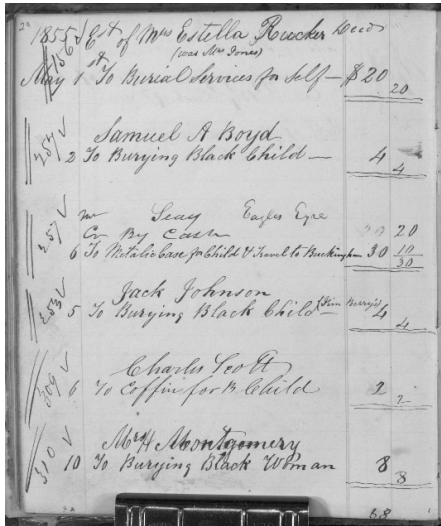 1855 Est of Mrs Estella Rucker Decd
(was Mrs Jones)
May 1st To Burial Services for Self — $20
20
257 √
Samuel A Boyd
2 To Burying Black Child — 4
4
257 √
Mr Seay Eagles Eyre
Cr By Cash 20
6 To Metalic Case for Child & Travel to Buckingham 30 10
30
253 √
Jack Johnson
5 To Burying Black Child — 4
4
309 √
Charles Scott
6 To Coffin for B Child 2
2
310 √
Mrs H Montgomery
10 To Burying Black Woman 8
8
68